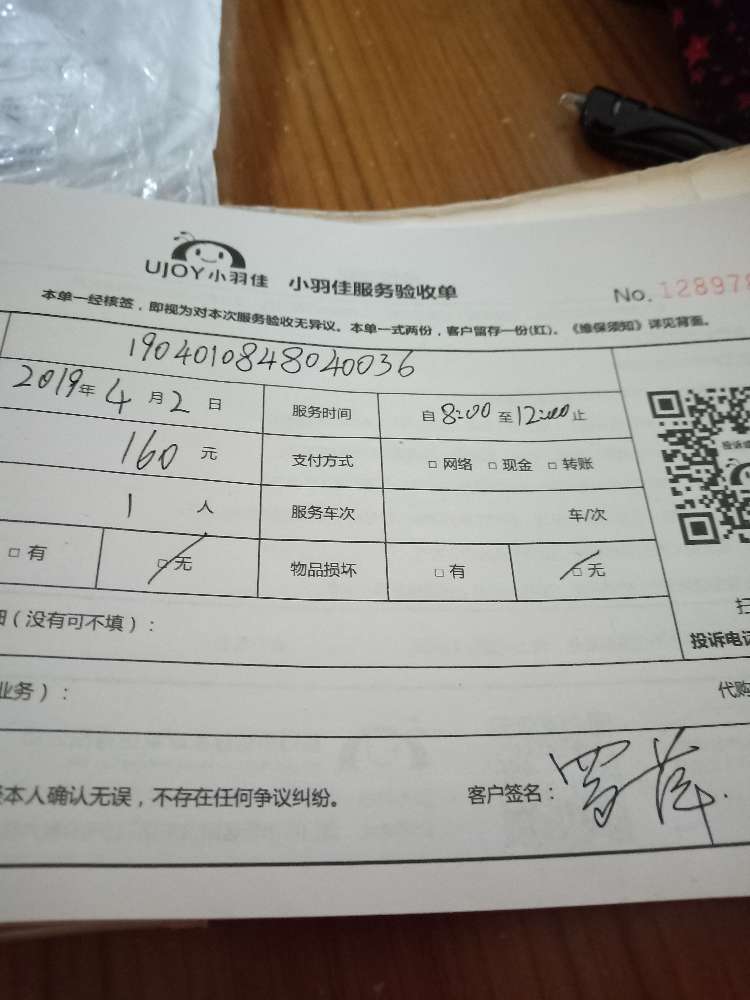 UJOY小羽佳 小羽佳服务验收单 No. 128978
本单一经核签，即视为对本次服务验收无异议。本单一式两份，客户留存一份(红)。《维保须知》详见背面。
1904010848040036
2019年4月2日 服务时间 自8:00至12:00止
160元 支付方式 □网络 □现金 □转账
1人 服务车次 车/次
□有 □无 物品损坏 □有 □无
细（没有可不填）：
扫
投诉电话
业务）： 代购
本人确认无误，不存在任何争议纠纷。 客户签名：